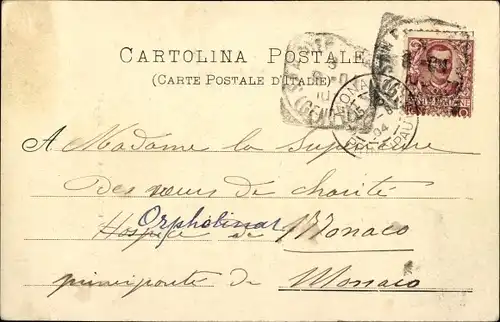 CARTOLINA POSTALE
(CARTE POSTALE D'ITALIE)
A Madame la Supérieure
Des sœurs de charité
Orphelinat
Hospice de Monaco
principauté de Monaco